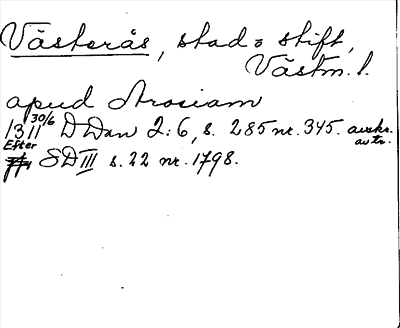 Västerås, stad o stift,
Västm. l.
apud Arosiam
1311 30/6 D Dan 2:6, s. 285 nr. 345. avskr.
Efter avtr.
SD III s. 22 nr. 1798.